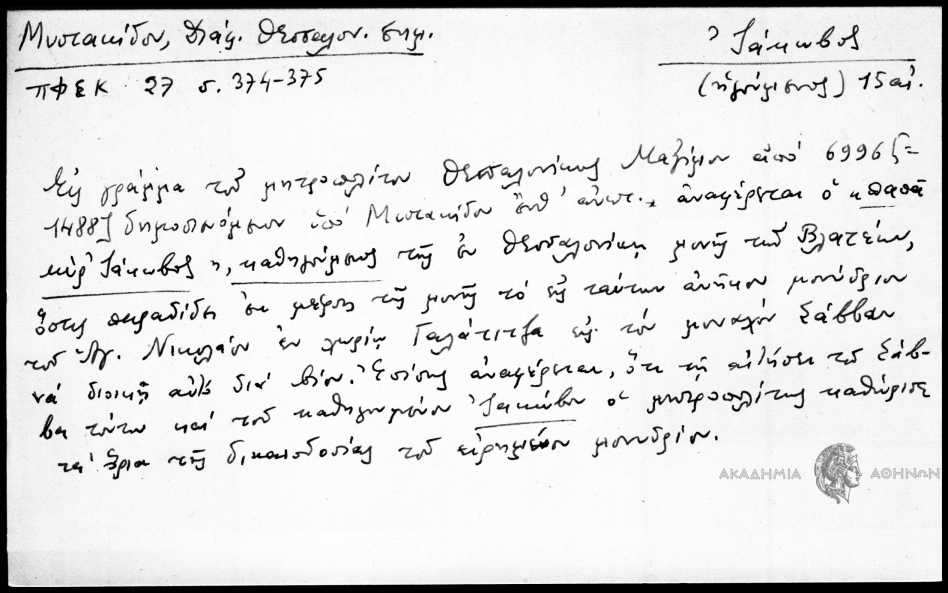 Μυστακίδου, Διάφ. Θεσσαλον. σημ.
Ἰάκωβος
ΠΦΣΚ 27 σ. 374-375
(ἡγούμενος) 15 αἰ.
Εἰς γράμμα τοῦ μητροπολίτου Θεσσαλονίκης Μαξίμου ἀπό 6996[=
1488] δημοσιευόμενον ὑπό Μυστακίδου ἔνθ' ἀνωτ., ἀναφέρεται ὁ "παπᾶ
κύρ Ἰάκωβος", καθηγούμενος τῆς ἐν Θεσσαλονίκῃ μονῆς τῶν Βλατέων,
ὅστις παραδίδει ἐκ μέρους τῆς μονῆς τό εἰς ταύτην ἀνῆκον μονύδριον
τοῦ Ἁγ. Νικολάου ἐν χωρίῳ Γαλάτιτβα εἰς τόν μοναχόν Σάββαν
νά διοικῇ αὐτό διά βίου. Ἐπίσης ἀναφέρεται, ὅτι τῇ αἰτήσει τοῦ Σάβ-
βα τούτου καί τοῦ καθηγουμένου Ἰακώβου ὁ μητροπολίτης καθώρισε
τά ὅρια τῆς δικαιοδοσίας τοῦ εἰρημένου μονυδρίου.
ΑΚΑΔΗΜΙΑ ΑΘΗΝΩΝ